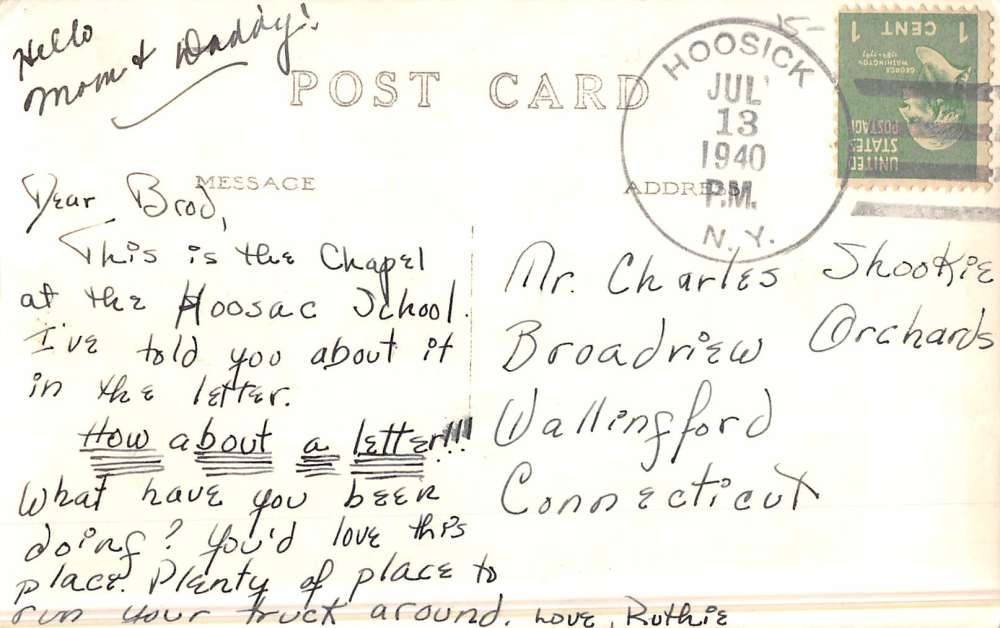 Hello
Mom & Daddy!
POST CARD
HOOSICK
JUL
13
1940
P.M.
N.Y.
1 CENT 1
GEORGE
WASHINGTON
UNITED
STATES
POSTAGE
MESSAGE
ADDRESS
Dear Brod,
This is the Chapel
at the Hoosac School.
I've told you about it
in the letter.
How about a letter!!!
What have you been
doing? You'd love this
place. Plenty of place to
run your truck around. Love, Ruthie
Mr. Charles Shookie
Broadview Orchards
Wallingford
Connecticut